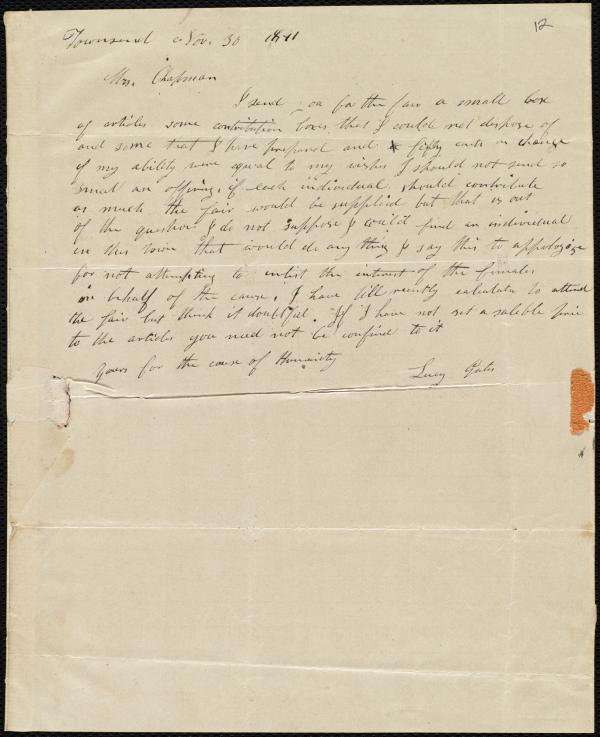 12
Townsend Nov. 30 1841
Mrs. Chapman
I send you for the fair a small box
of articles some contribution boxes that I could not dispose of
and some that I have prepared and fifty cents in change
if my ability were equal to my wishes I should not send so
small an offering, if each individual should contribute
as much the fair would be supplied but that is out
of the question I do not suppose I could find an individual
in this town that would do any thing I say this to appologize
for not attempting to enlist the interest of the females
in behalf of the cause. I have till recently calculated to attend
the fair but think it doubtful. If I have not set a salible price
to the articles you need not be confined to it
yours for the cause of Humanity
Lucy Gates